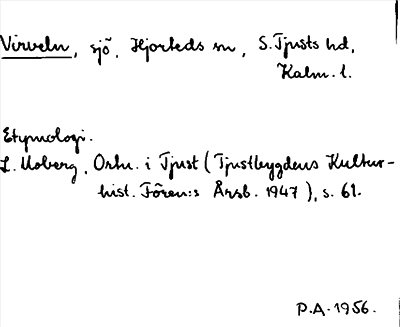 Virveln, sjö, Hjorteds sn, S. Tjusts hd,
Kalm. l.
Etymologi.
L. Moberg, Ortn. i Tjust (Tjustbygdens Kultur-
hist. Fören:s Årsb. 1947), s. 61.
P.A. 1956.